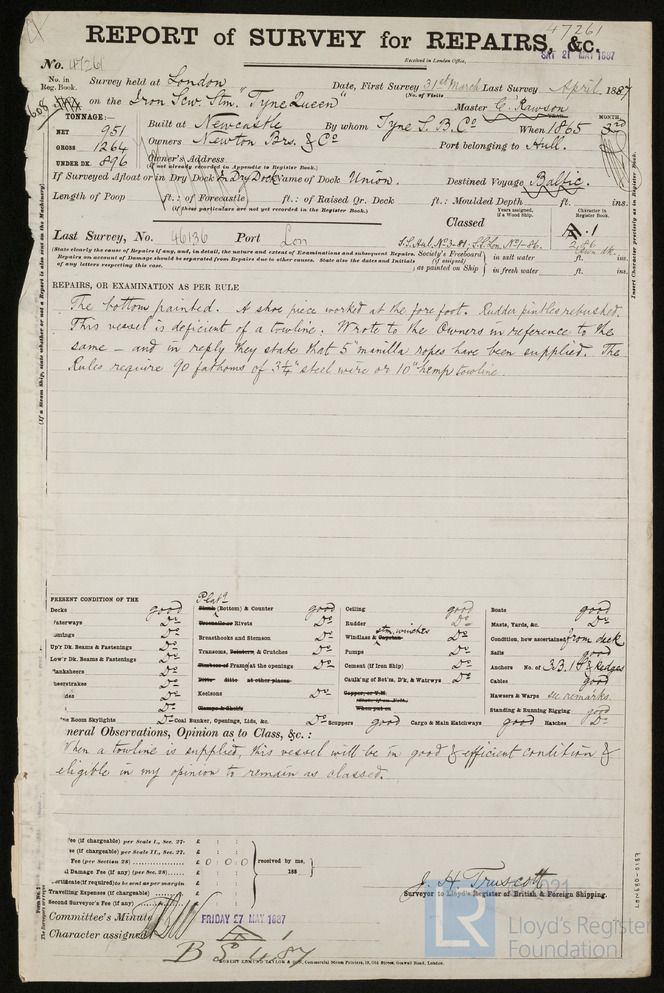 47261
REPORT of SURVEY for REPAIRS, &c.
No. 47261
Received in London Office,
SAT 21 MAY 1887
No. in Reg. Book.
Survey held at London
Date, First Survey 31st March Last Survey April 1887
(No. of Visits
on the Iron Scw. Stm. "Tyne Queen"
Master G. Rawson
TONNAGE:—
NET 951
GROSS 1264
UNDER DK. 896
Built at Newcastle
By whom Tyne S. B. Co
When 1865
MONTH.
YEAR.
Owners Newton Brs. & Co
Port belonging to Hull.
Owner's Address
(if not already recorded in Appendix to Register Book.)
If Surveyed Afloat or in Dry Dock In Dry Dock Name of Dock Union.
Destined Voyage Baltic.
Length of Poop ft.: of Forecastle ft.: of Raised Qr. Deck ft.: Moulded Depth ft. ins.
(if these particulars are not yet recorded in the Register Book.)
Years assigned, if a Wood Ship.
Character in Register Book.
Classed
A.1
Last Survey, No. 46136 Port Lon
S.S. Hul. No 3-81; S.S. Lon. No 1-86.
(State clearly the cause of Repairs if any, and, in detail, the nature and extent of Examinations and subsequent Repairs.
Repairs on account of Damage should be separated from Repairs due to other causes. State also the dates and Initials
of any letters respecting this case.
Society's Freeboard (if assigned) in salt water ft. ins.
; as painted on Ship in fresh water ft. ins.
REPAIRS, OR EXAMINATION AS PER RULE
The bottom painted. A shoe piece worked at the forefoot. Rudder pintles rebushed.
This vessel is deficient of a towline. Wrote to the Owners in reference to the
same — and in reply they state that 5" manilla ropes have been supplied. The
Rules require 90 fathoms of 3¼" steel wire or 10" hemp towline.
PRESENT CONDITION OF THE
Decks good
Waterways Do
Do
Up'r Dk. Beams & Fastenings Do
Low'r Dk. Beams & Fastenings Do
Do
Do
Do
Do
ne Room Skylights Do
Platg
Plank (Bottom) & Counter good
Treenails or Rivets Do
Breasthooks and Stemson Do
Transoms, Pointers, & Crutches Do
Timbers of Frame at the openings Do
Ditto ditto at other places
Keelsons Do
Clamps & Shelfs
Coal Bunker, Openings, Lids, &c. Do
Ceiling good
Rudder Do
Windlass & Capstan stm. winches Do
Pumps Do
Cement (if Iron Ship) Do
Caulk'ng of Bot'm, D'k, & Watrwys Do
Copper, or Y.M.
When put on
Scuppers good Cargo & Main Hatchways good Hatches Do
Boats good
Masts, Yards, &c. Do
Condition, how ascertained from deck
Sails good
Anchors No. of 3B. 1S. & 2 Kedges
Cables good
Hawsers & Warps see remarks.
Standing & Running Rigging good
neral Observations, Opinion as to Class, &c.:
When a towline is supplied, this vessel will be in good & efficient condition &
eligible in my opinion to remain as classed.
'ee (if chargeable) per Scale I., Sec. 27. £ : :
ee (if chargeable) per Scale II., Sec. 27. £ : :
Fee (per Section 28) £ 0 : 0 : 0
l Damage Fee (if any) (per Sec. 28) £ : :
ertificate (if required) to be sent as per margin
Travelling Expenses (if chargeable) £ : :
Second Surveyor's Fee (if any) £ : :
received by me,
188
J. H. Truscott
Surveyor to Lloyd's Register of British & Foreign Shipping.
Committee's Minute
FRIDAY 27 MAY 1887
Character assigned
ROBERT EDMUND TAYLOR & SON, Commercial Steam Printers, 19, Old Street, Goswell Road, London.
(If a Steam Ship, state whether or not a Report is also sent on the Machinery)
Insert Character precisely as in Register Book.
LR
2021
Lloyd's Register
Foundation